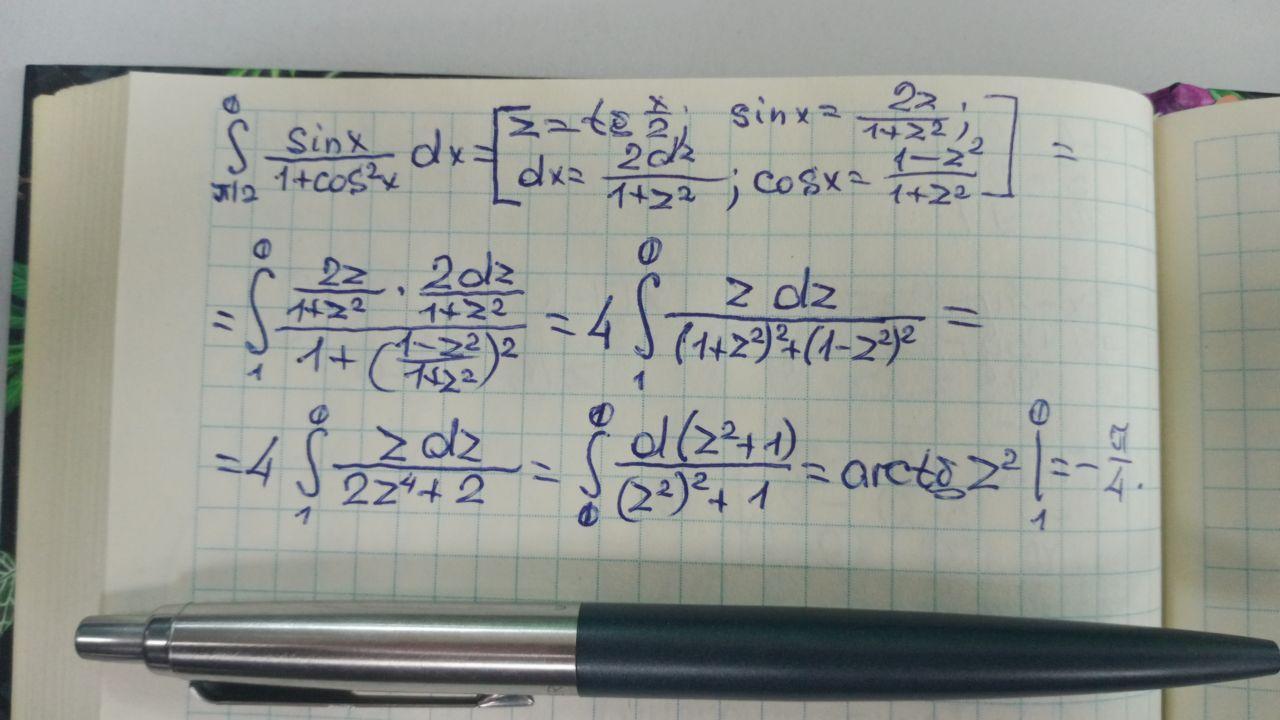 ∫_{π/2}^{0} \frac{sinx}{1+cos²x} dx = [z = tg \frac{x}{2}; sinx = \frac{2z}{1+z²}; dx = \frac{2dz}{1+z²}; cosx = \frac{1-z²}{1+z²}] =
= ∫_{1}^{0} \frac{\frac{2z}{1+z²} · \frac{2dz}{1+z²}}{1+(\frac{1-z²}{1+z²})²} = 4 ∫_{1}^{0} \frac{z dz}{(1+z²)²+(1-z²)²} =
= 4 ∫_{1}^{0} \frac{z dz}{2z⁴+2} = ∫ \frac{d(z²+1)}{(z²)²+1} = arctg z² |_{1}^{0} = -\frac{π}{4}.